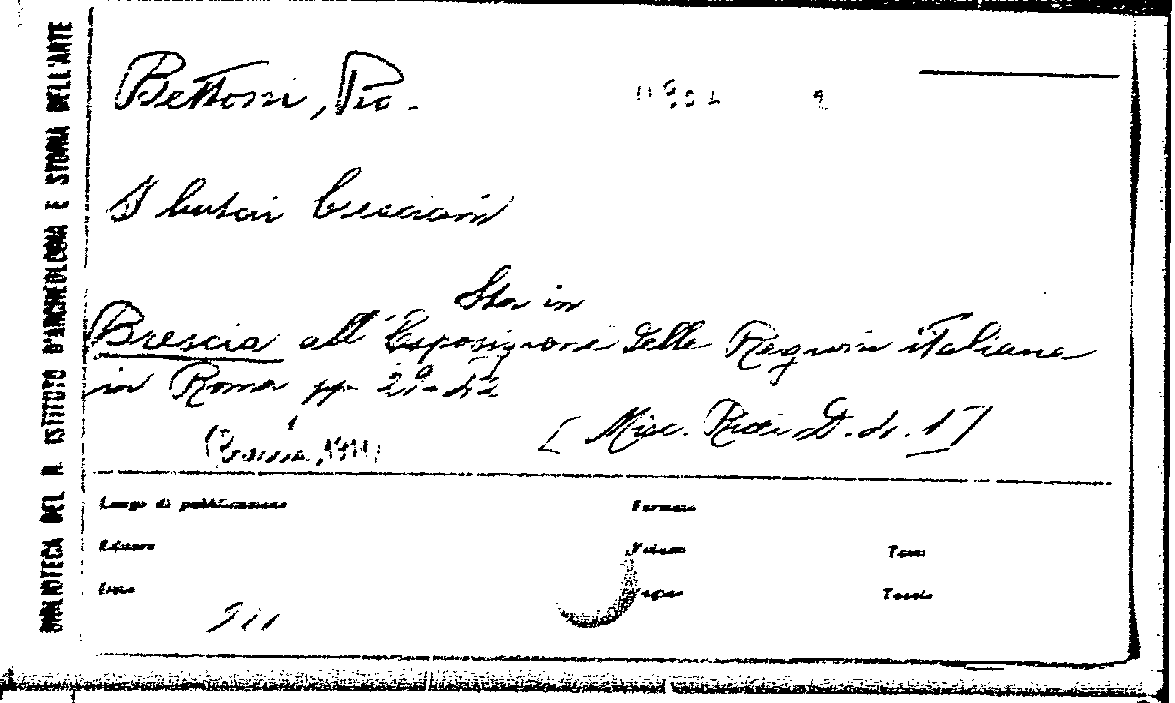 BIBLIOTECA DEL R. ISTITUTO D'ARCHEOLOGIA E STORIA DELL'ARTE
Bettoni, Pio.
I liutai bresciani
Sta in
Brescia all'Esposizione delle Regioni italiane
in Roma pp.
(Brescia, 1911) [Misc. Ricci D. 1]
Luogo di pubblicazione Formato
Editore Volumi Tomi
Data Pagine Tavole
911